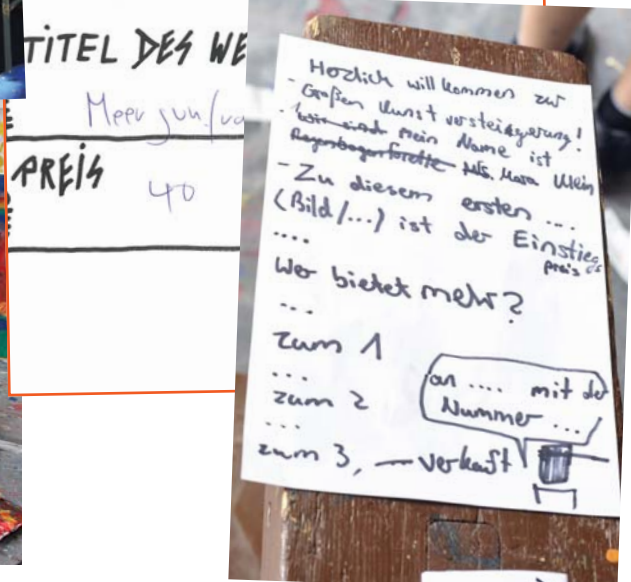 TITEL DES WE
Meerjunfra
PREIS
40
Hozlich willkommen zur
- Großen Kunstversteigerung!
- Wir sind Mein Name ist
Regenbogenforelle Ms. Mara Klein
- Zu diesem ersten ....
(Bild/...) ist der Einstiegs
preis
....
Wer bietet mehr?
...
zum 1
...
zum 2
...
zum 3, — verkauft
an .... mit der
Nummer ...